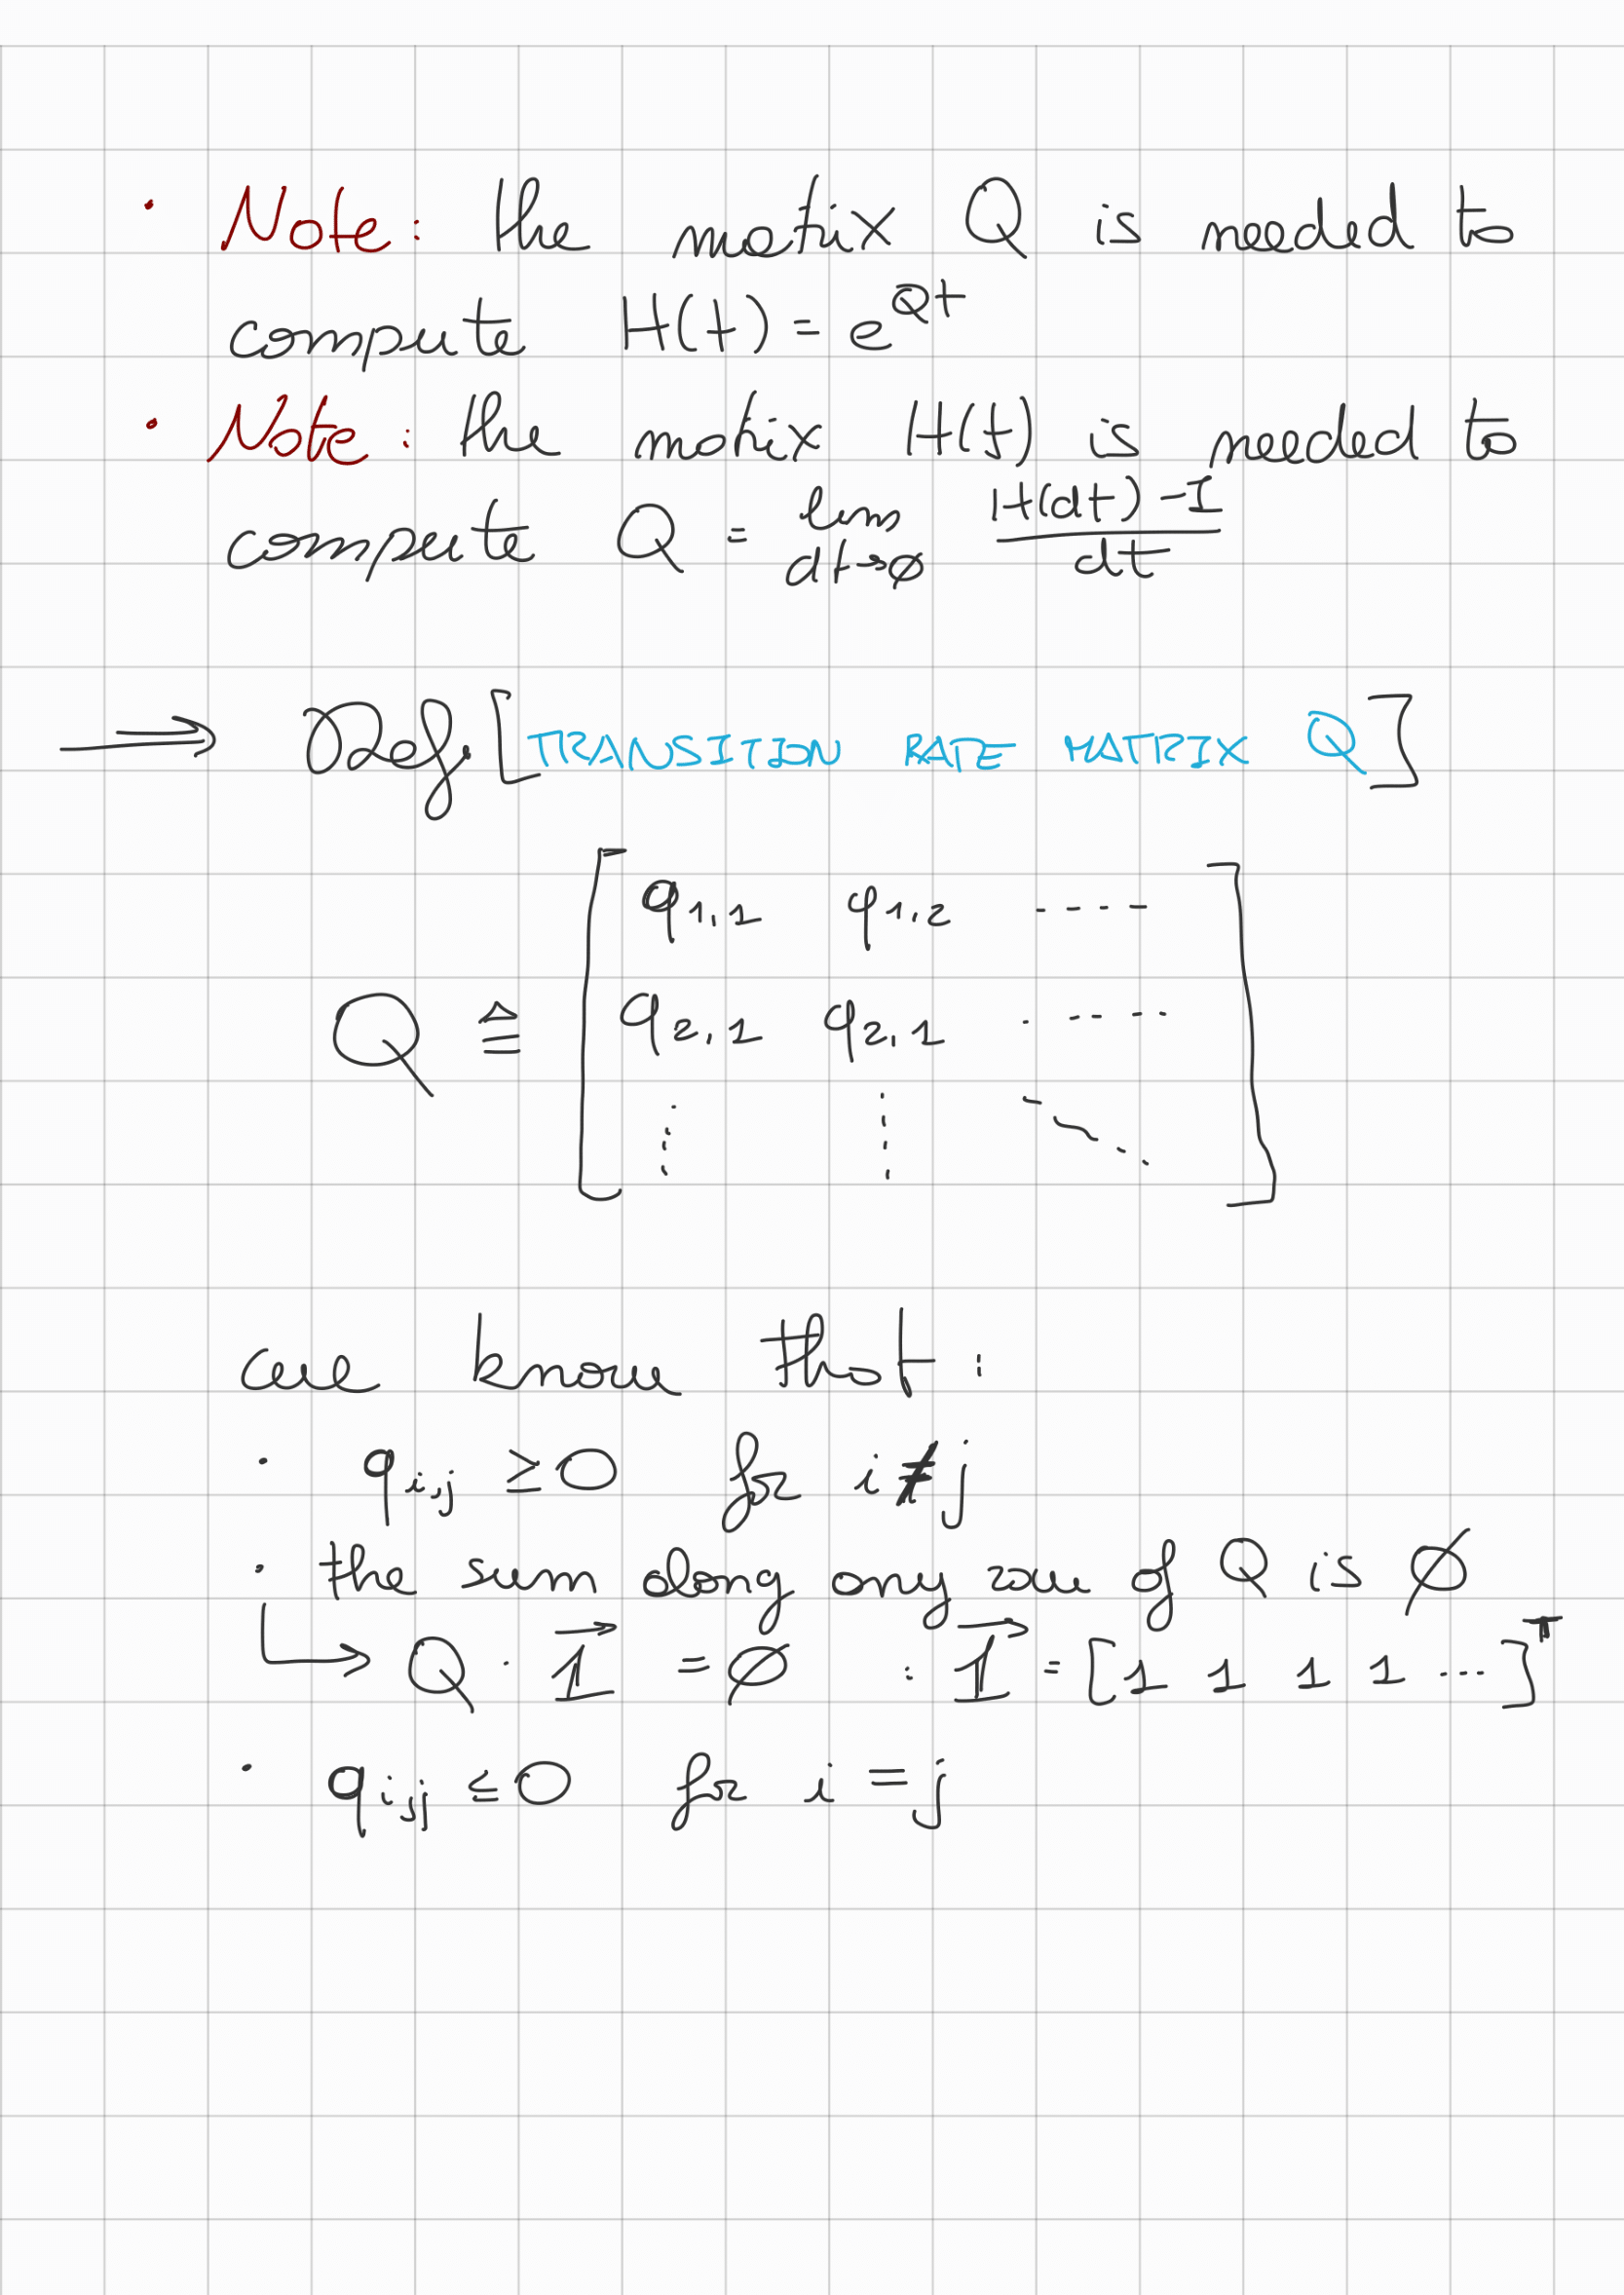 · Note: the matrix Q is needed to
compute H(t) = e^{Qt}
· Note: the matrix H(t) is needed to
compute Q = lim_{dt→∅} (H(dt) - I) / dt
⟹ Def [TRANSITION RATE MATRIX Q]
q_{1,1} q_{1,2} ....
Q ≜ [ q_{2,1} q_{2,1} ..... ]
⋮ ⋮ ⋱
we know that:
· q_{i,j} ≥ 0 for i ≠ j
· the sum along any row of Q is ∅
↳ Q · \vec{1} = ∅ : \vec{1} = [1 1 1 1 ...]^T
· q_{i,j} ≤ 0 for i = j